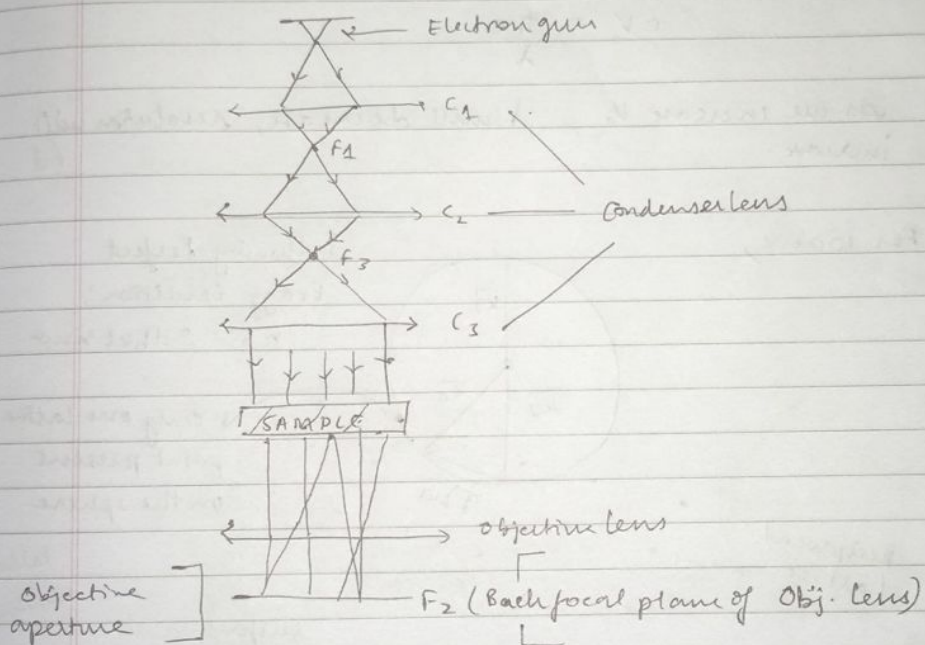 Electron gun
C1
F1
C2
Condenser lens
F3
C3
SAMPLE
Objective lens
Objective
aperture
F2 (Back focal plane of Obj. lens)